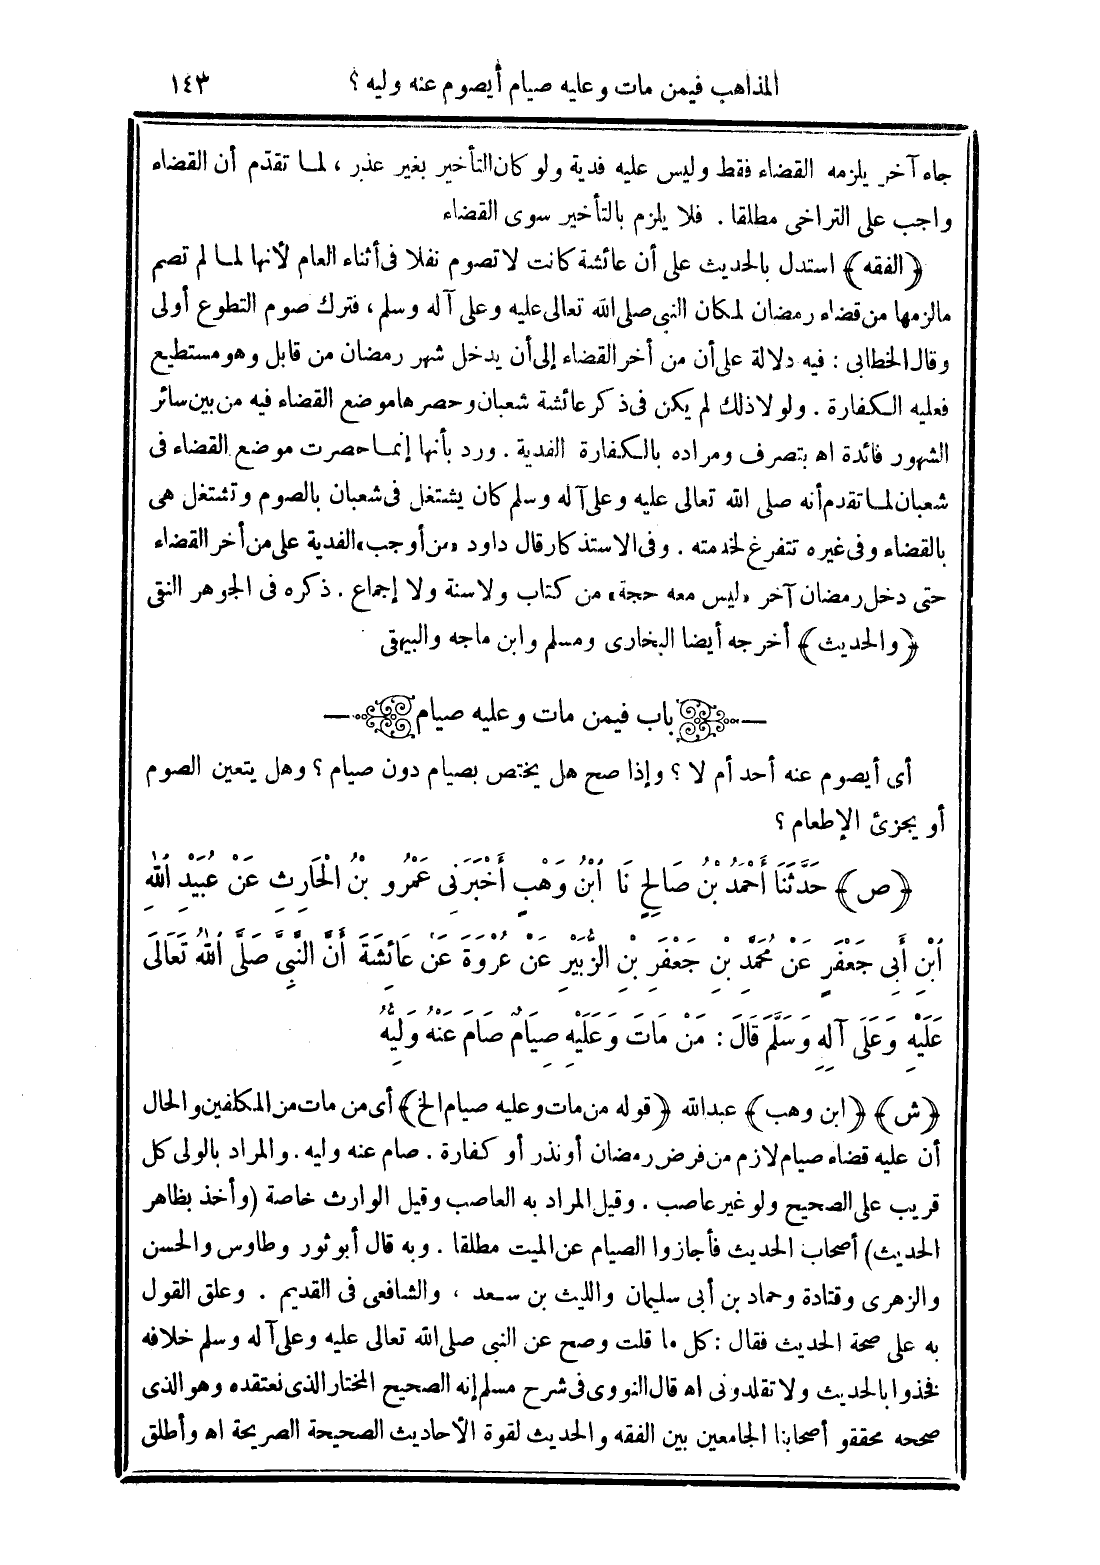 المذاهب فيمن مات وعليه صيام أيصوم عنه وليه ؟ ١٤٣
جاء آخر يلزمه القضاء فقط وليس عليه فدية ولو كان التأخير بغير عذر ، لما تقدّم أن القضاء
واجب على التراخى مطلقا . فلا يلزم بالتأخير سوى القضاء
﴿الفقه﴾ استدل بالحديث على أن عائشة كانت لاتصوم نفلا فى أثناء العام لأنها لما لم تصم
مالزمها من قضاء رمضان لمكان النبى صلى الله تعالى عليه وعلى آله وسلم ، فترك صوم التطوع أولى
وقال الخطابى : فيه دلالة على أن من أخر القضاء إلى أن يدخل شهر رمضان من قابل وهو مستطيع
فعليه الكفارة . ولولا ذلك لم يكن فى ذكر عائشة شعبان وحصرها موضع القضاء فيه من بين سائر
الشهور فائدة اه بتصرف ومراده بالكفارة الفدية . ورد بأنها إنما حصرت موضع القضاء فى
شعبان لما تقدم أنه صلى الله تعالى عليه وعلى آله وسلم كان يشتغل فى شعبان بالصوم وتشتغل هى
بالقضاء وفى غيره تتفرغ لخدمته . وفى الاستذكار قال داود «من أوجب» الفدية على من أخر القضاء
حتى دخل رمضان آخر «ليس معه حجة» من كتاب ولا سنة ولا إجماع . ذكره فى الجوهر النقى
﴿والحديث﴾ أخرجه أيضا البخارى ومسلم وابن ماجه والبيهقى
باب فيمن مات وعليه صيام
أى أيصوم عنه أحد أم لا ؟ وإذا صح هل يختص بصيام دون صيام ؟ وهل يتعين الصوم
أو يجزئ الإطعام ؟
﴿ص﴾ حَدَّثَنَا أَحْمَدُ بْنُ صَالِحٍ نَا ابْنُ وَهْبٍ أَخْبَرَنِى عَمْرُو بْنُ الْحَارِثِ عَنْ عُبَيْدِ اللهِ
ابْنِ أَبِى جَعْفَرٍ عَنْ مُحَمَّدِ بْنِ جَعْفَرِ بْنِ الزُّبَيْرِ عَنْ عُرْوَةَ عَنْ عَائِشَةَ أَنَّ النَّبِىَّ صَلَّى اللهُ تَعَالَى
عَلَيْهِ وَعَلَى آلِهِ وَسَلَّمَ قَالَ : مَنْ مَاتَ وَعَلَيْهِ صِيَامٌ صَامَ عَنْهُ وَلِيُّهُ
﴿ش﴾ ﴿ابن وهب﴾ عبدالله ﴿قوله من مات وعليه صيام الخ﴾ أى من مات من المكلفين والحال
أن عليه قضاء صيام لازم من فرض رمضان أو نذر أو كفارة . صام عنه وليه . والمراد بالولى كل
قريب على الصحيح ولو غير عاصب . وقيل المراد به العاصب وقيل الوارث خاصة (وأخذ بظاهر
الحديث) أصحاب الحديث فأجازوا الصيام عن الميت مطلقا . وبه قال أبو ثور وطاوس والحسن
والزهرى وقتادة وحماد بن أبى سليمان والليث بن سعد ، والشافعى فى القديم . وعلق القول
به على صحة الحديث فقال : كل ما قلت وصح عن النبى صلى الله تعالى عليه وعلى آله وسلم خلافه
فخذوا بالحديث ولا تقلدونى اه قال النووى فى شرح مسلم إنه الصحيح المختار الذى نعتقده وهو الذى
صححه محققو أصحابنا الجامعين بين الفقه والحديث لقوة الأحاديث الصحيحة الصريحة اه وأطلق